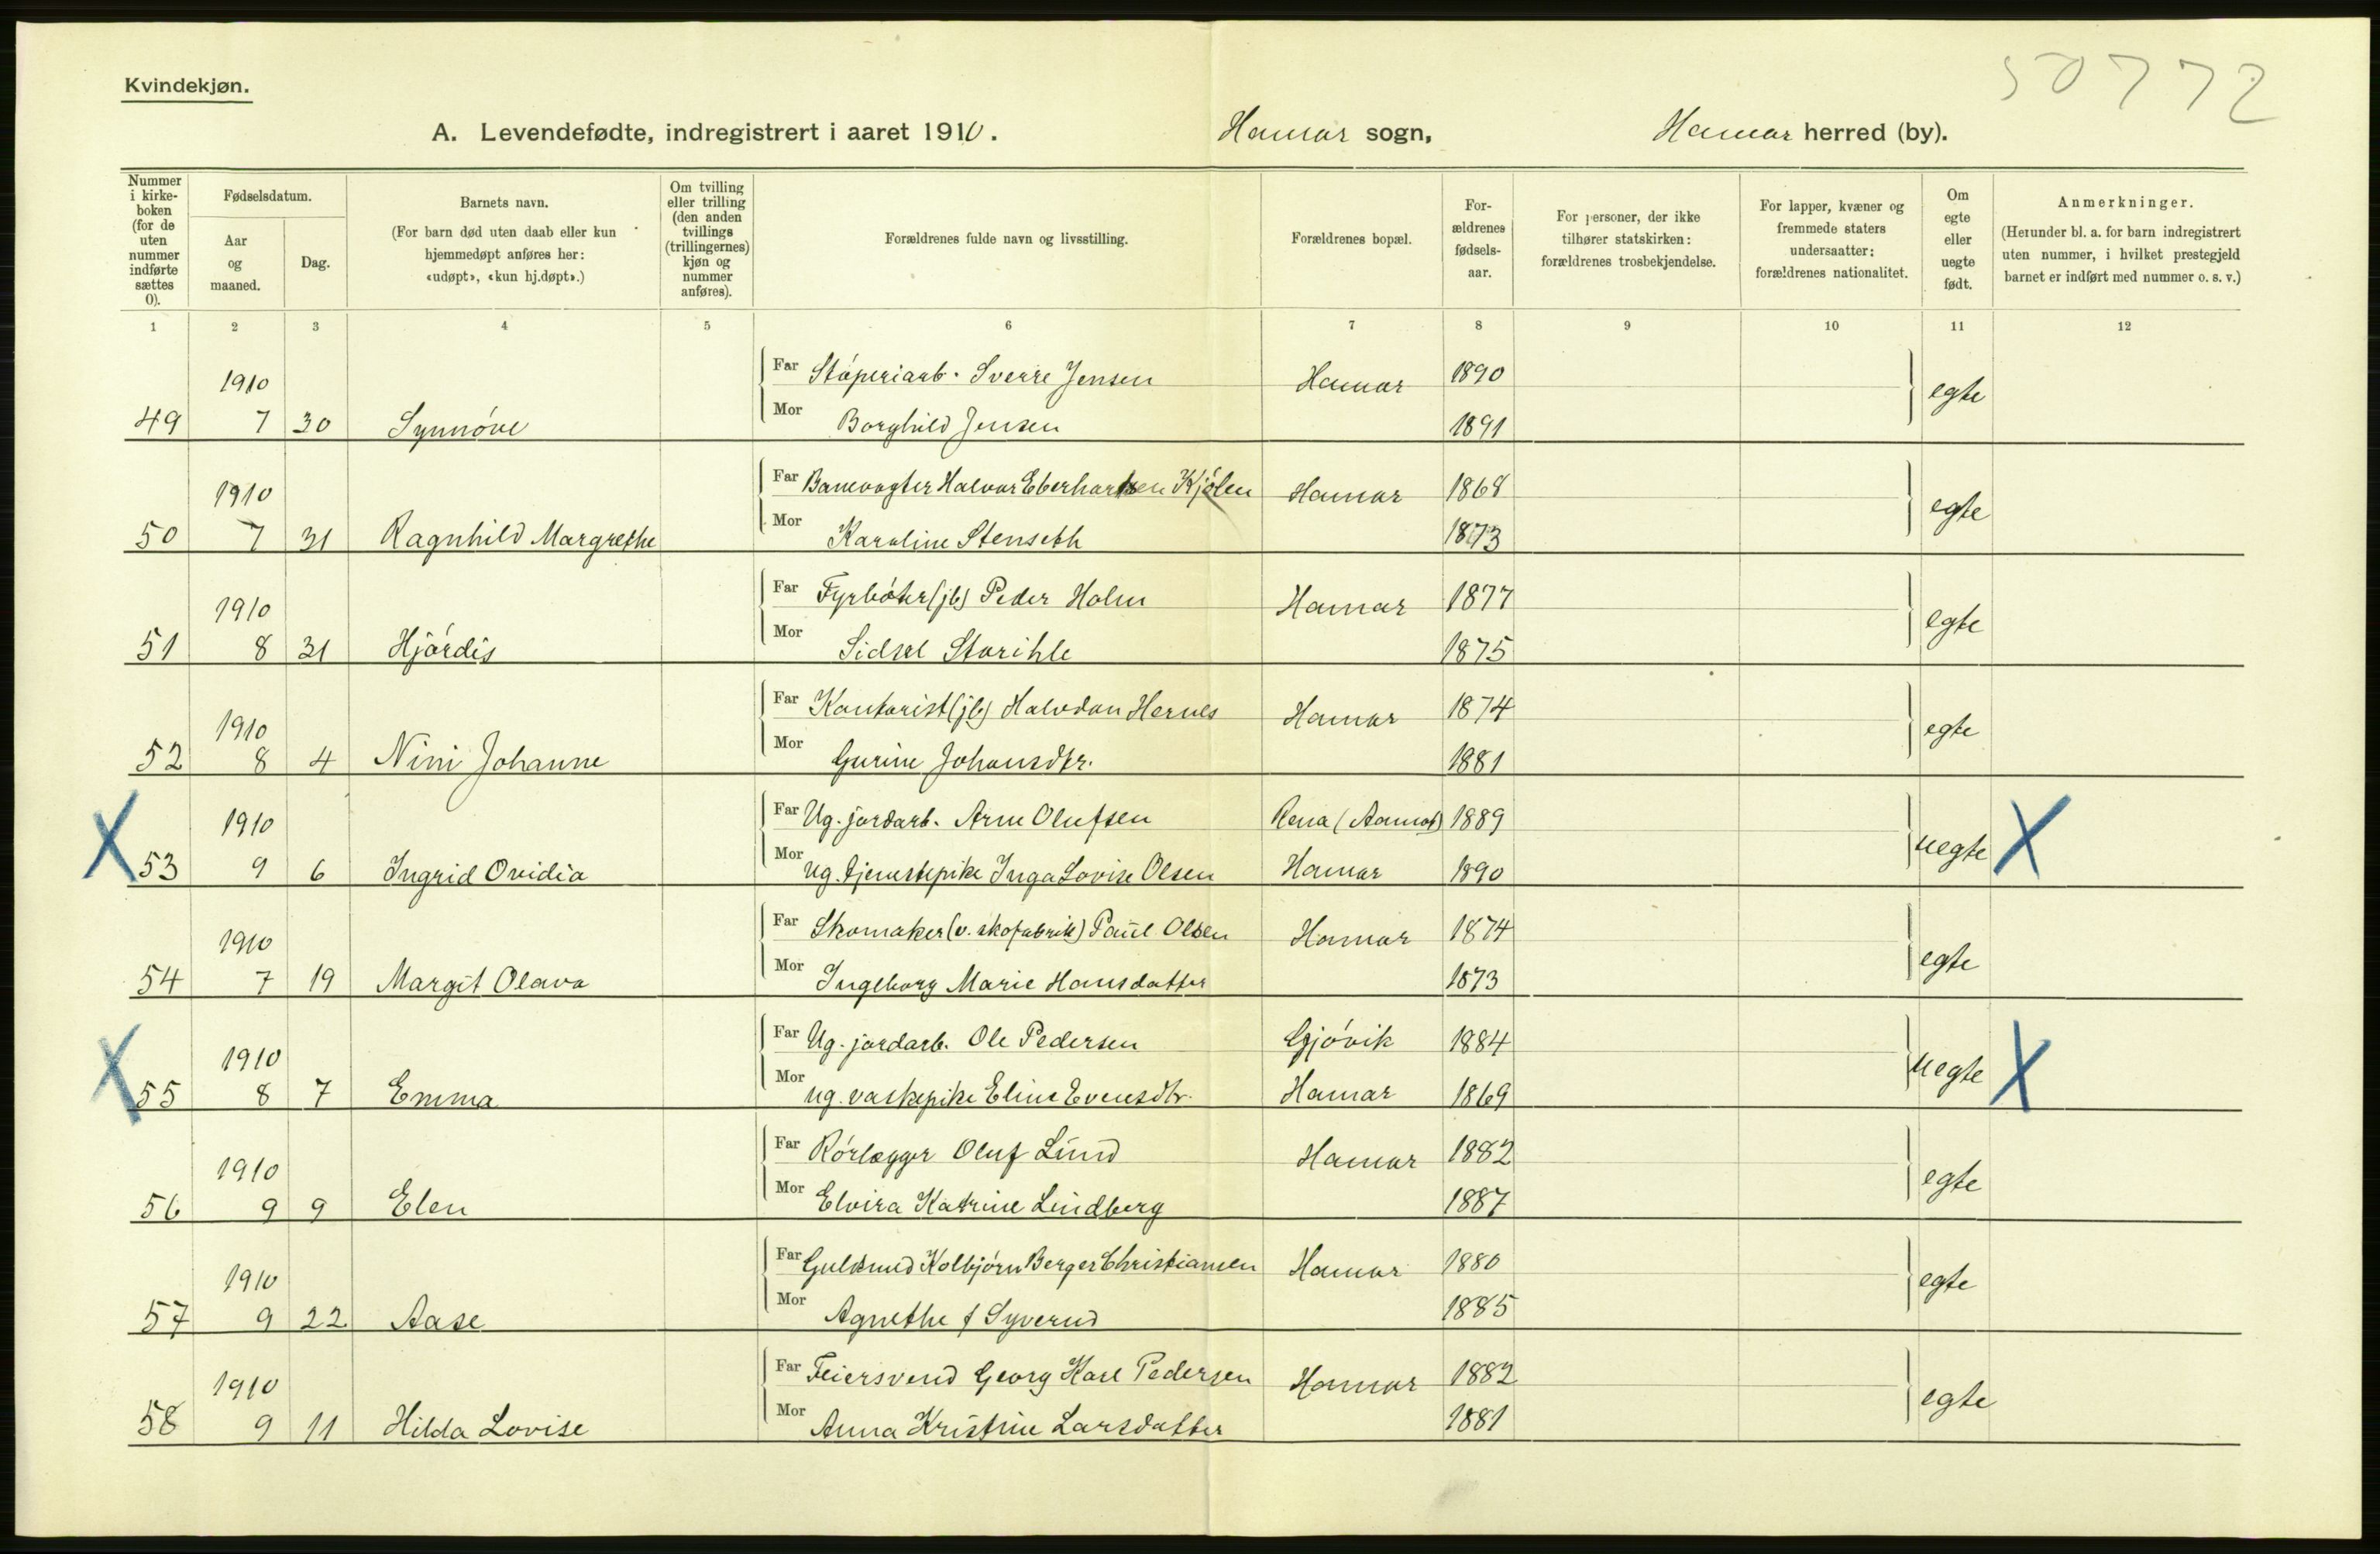 50772
Kvindekjøn.
A. Levendefødte, indregistrert i aaret 1910. Hamar sogn, Hamar herred (by).
Nummer i kirke-boken (for de uten nummer indførte sættes 0).
Fødselsdatum.
Aar og maaned.
Dag.
Barnets navn.
(For barn død uten daab eller kun hjemmedøpt anføres her: «udøpt», «kun hj.døpt».)
Om tvilling eller trilling (den anden tvillings (trillingernes) kjøn og nummer anføres).
Forældrenes fulde navn og livsstilling.
Forældrenes bopæl.
For-ældrenes fødsels-aar.
For personer, der ikke tilhører statskirken: forældrenes trosbekjendelse.
For lapper, kvæner og fremmede staters undersaatter: forældrenes nationalitet.
Om egte eller uegte født.
Anmerkninger.
(Herunder bl. a. for barn indregistrert uten nummer, i hvilket prestegjeld barnet er indført med nummer o. s. v.)
1 2 3 4 5 6 7 8 9 10 11 12
1910 Far Støperiarb. Sverre Jensen Hamar 1890 egte
49 7 30 Synnøve Mor Borghild Jensen 1891
1910 Far Banevogter Halvor Eberhartsen Kjølen Hamar 1868 egte
50 7 31 Ragnhild Margrethe Mor Karoline Stenseth 1873
1910 Far Fyrbøter (jb) Peder Holm Hamar 1877 egte
51 8 31 Hjørdis Mor Sidsel Storihle 1875
1910 Far Kontorist (jb) Halvdan Hernes Hamar 1874 egte
52 8 4 Nini Johanne Mor Gurine Johansdtr. 1881
X 1910 Far Ug. jordarb. Arne Olufsen Rena (Aamot) 1889 uegte X
53 9 6 Ingrid Ovidia Mor ug. tjenestepike Inga Lovise Olsen Hamar 1890
1910 Far Skomaker (v. skofabrik) Paul Olsen Hamar 1874 egte
54 7 19 Margit Olava Mor Ingeborg Marie Hansdatter 1873
X 1910 Far Ug. jordarb. Ole Pedersen Gjøvik 1884 uegte X
55 8 7 Emma Mor ug. vaskepike Eline Evensdtr. Hamar 1869
1910 Far Rørlægger Oluf Lund Hamar 1882 egte
56 9 9 Elen Mor Elvira Katrine Lindberg 1887
1910 Far Guldsmed Kolbjørn Berger Christiansen Hamar 1880 egte
57 9 22 Aase Mor Agnethe f Syverud 1885
1910 Far Feiersvend Georg Karl Pedersen Hamar 1882 egte
58 9 11 Hilda Lovise Mor Anna Kristine Larsdatter 1881